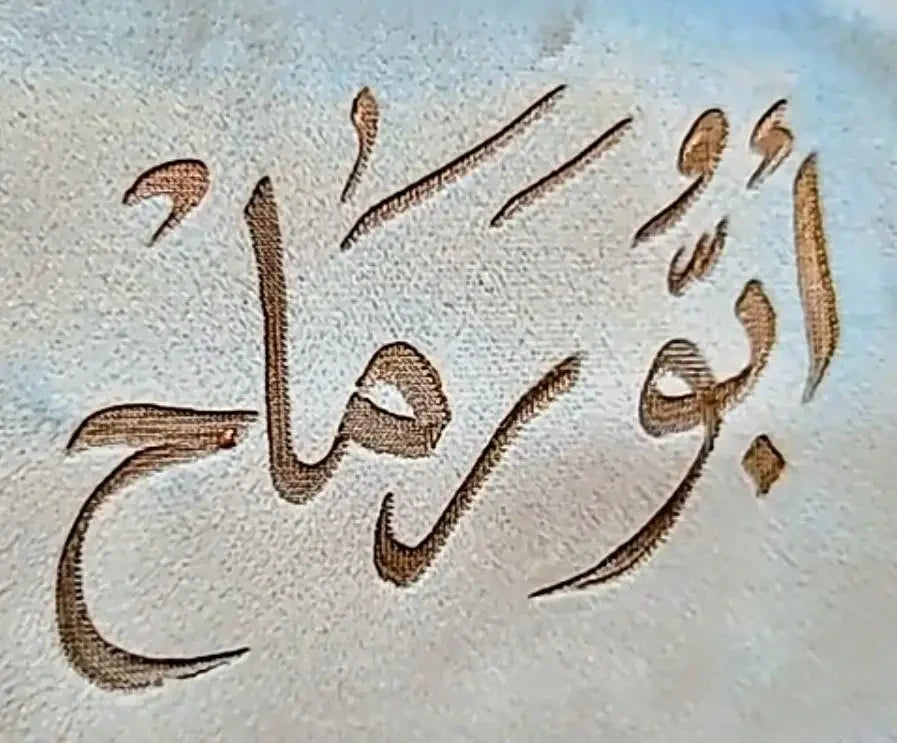 أبُّو رَمَاح